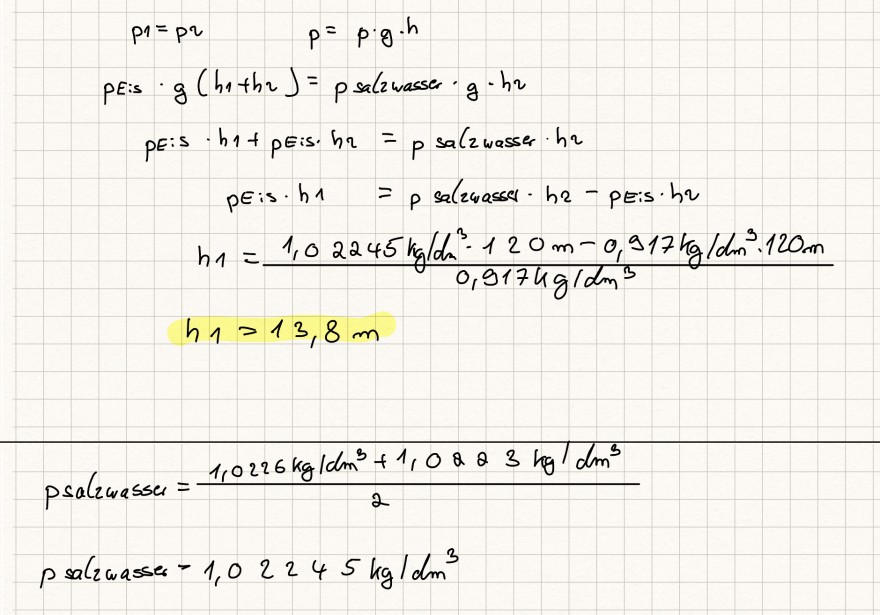 p1 = p2 p = p·g·h
pEis · g (h1+h2) = p salzwasser · g · h2
pEis · h1 + pEis · h2 = p salzwasser · h2
pEis · h1 = p salzwasser · h2 − pEis · h2
h1 = (1,02245 kg/dm³ · 120 m − 0,917 kg/dm³ · 120 m) / 0,917 kg/dm³
h1 = 13,8 m
psalzwasser = (1,0226 kg/dm³ + 1,0223 kg/dm³) / 2
p salzwasser = 1,02245 kg/dm³